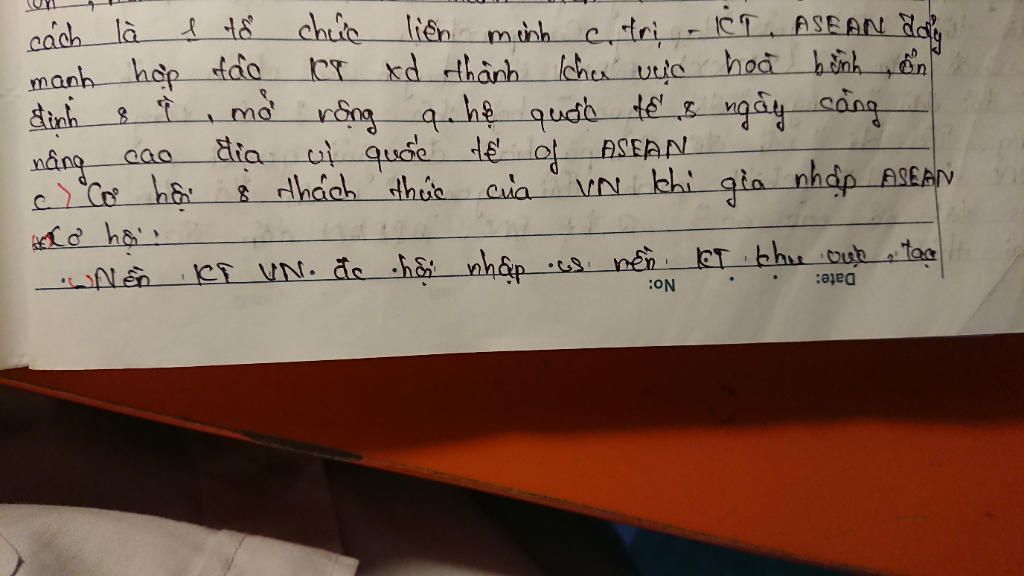 cách là 1 tổ chức liên minh c.trị - KT. ASEAN đẩy
mạnh hợp tác KT xd thành khu vực hoà bình, ổn
định & , mở rộng q.hệ quốc tế & ngày càng
nâng cao địa vị quốc tế of ASEAN
c) Cơ hội & thách thức của VN khi gia nhập ASEAN
Cơ hội:
Nền KT VN đc hội nhập nền KT khu vực, tạo
No:
Date: